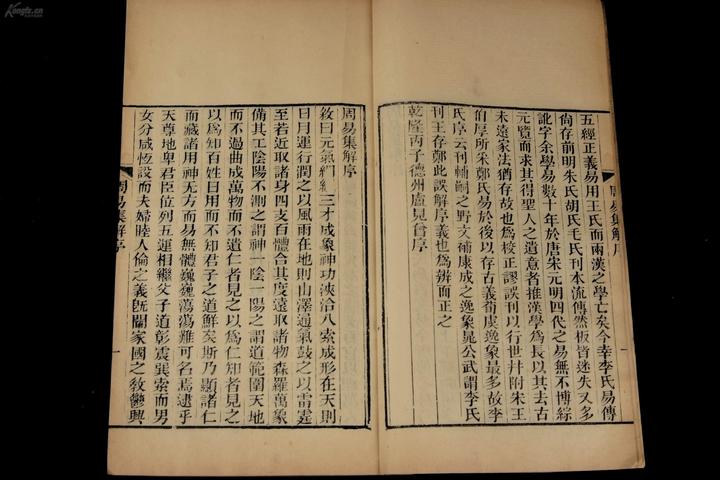 五經正義易用王氏而兩漢之學亡矣今幸李氏易傳
尙存前明朱氏胡氏毛氏刊本流傳然板皆迷失又多
訛字余學易數十年於唐宋元明四代之易無不博綜
元覽而求其得聖人之遺意者推漢學爲長以其去古
未遠家法猶存故也爲校正謬誤刊以行世幷附朱王
伯厚所采鄭氏易於後以存古義荀虞逸象最多故李
氏序云刊輔嗣之野文補康成之逸象晁公武謂李氏
刊王存鄭此誤解序義也爲辨而正之
乾隆丙子德州盧見曾序
周易集解序
周易集解序
敘曰元氣絪縕三才成象神功浹洽八索成形在天則
日月運行潤之以風雨在地則山澤通氣鼓之以雷霆
至若近取諸身四支百體合其度遠取諸物森羅萬象
備其工陰陽不測之謂神一陰一陽之謂道範圍天地
而不過曲成萬物而不遺仁者見之以爲仁知者見之
以爲知百姓日用而不知君子之道鮮矣斯乃顯諸仁
而藏諸用神无方而易無體巍巍蕩蕩難可名焉逮乎
天尊地卑君臣位列五運相繼父子道彰震巽索而男
女分咸恆設而夫婦睦人倫之義旣闡家國之敎鬱興
周易集解序
Kongfz.cn